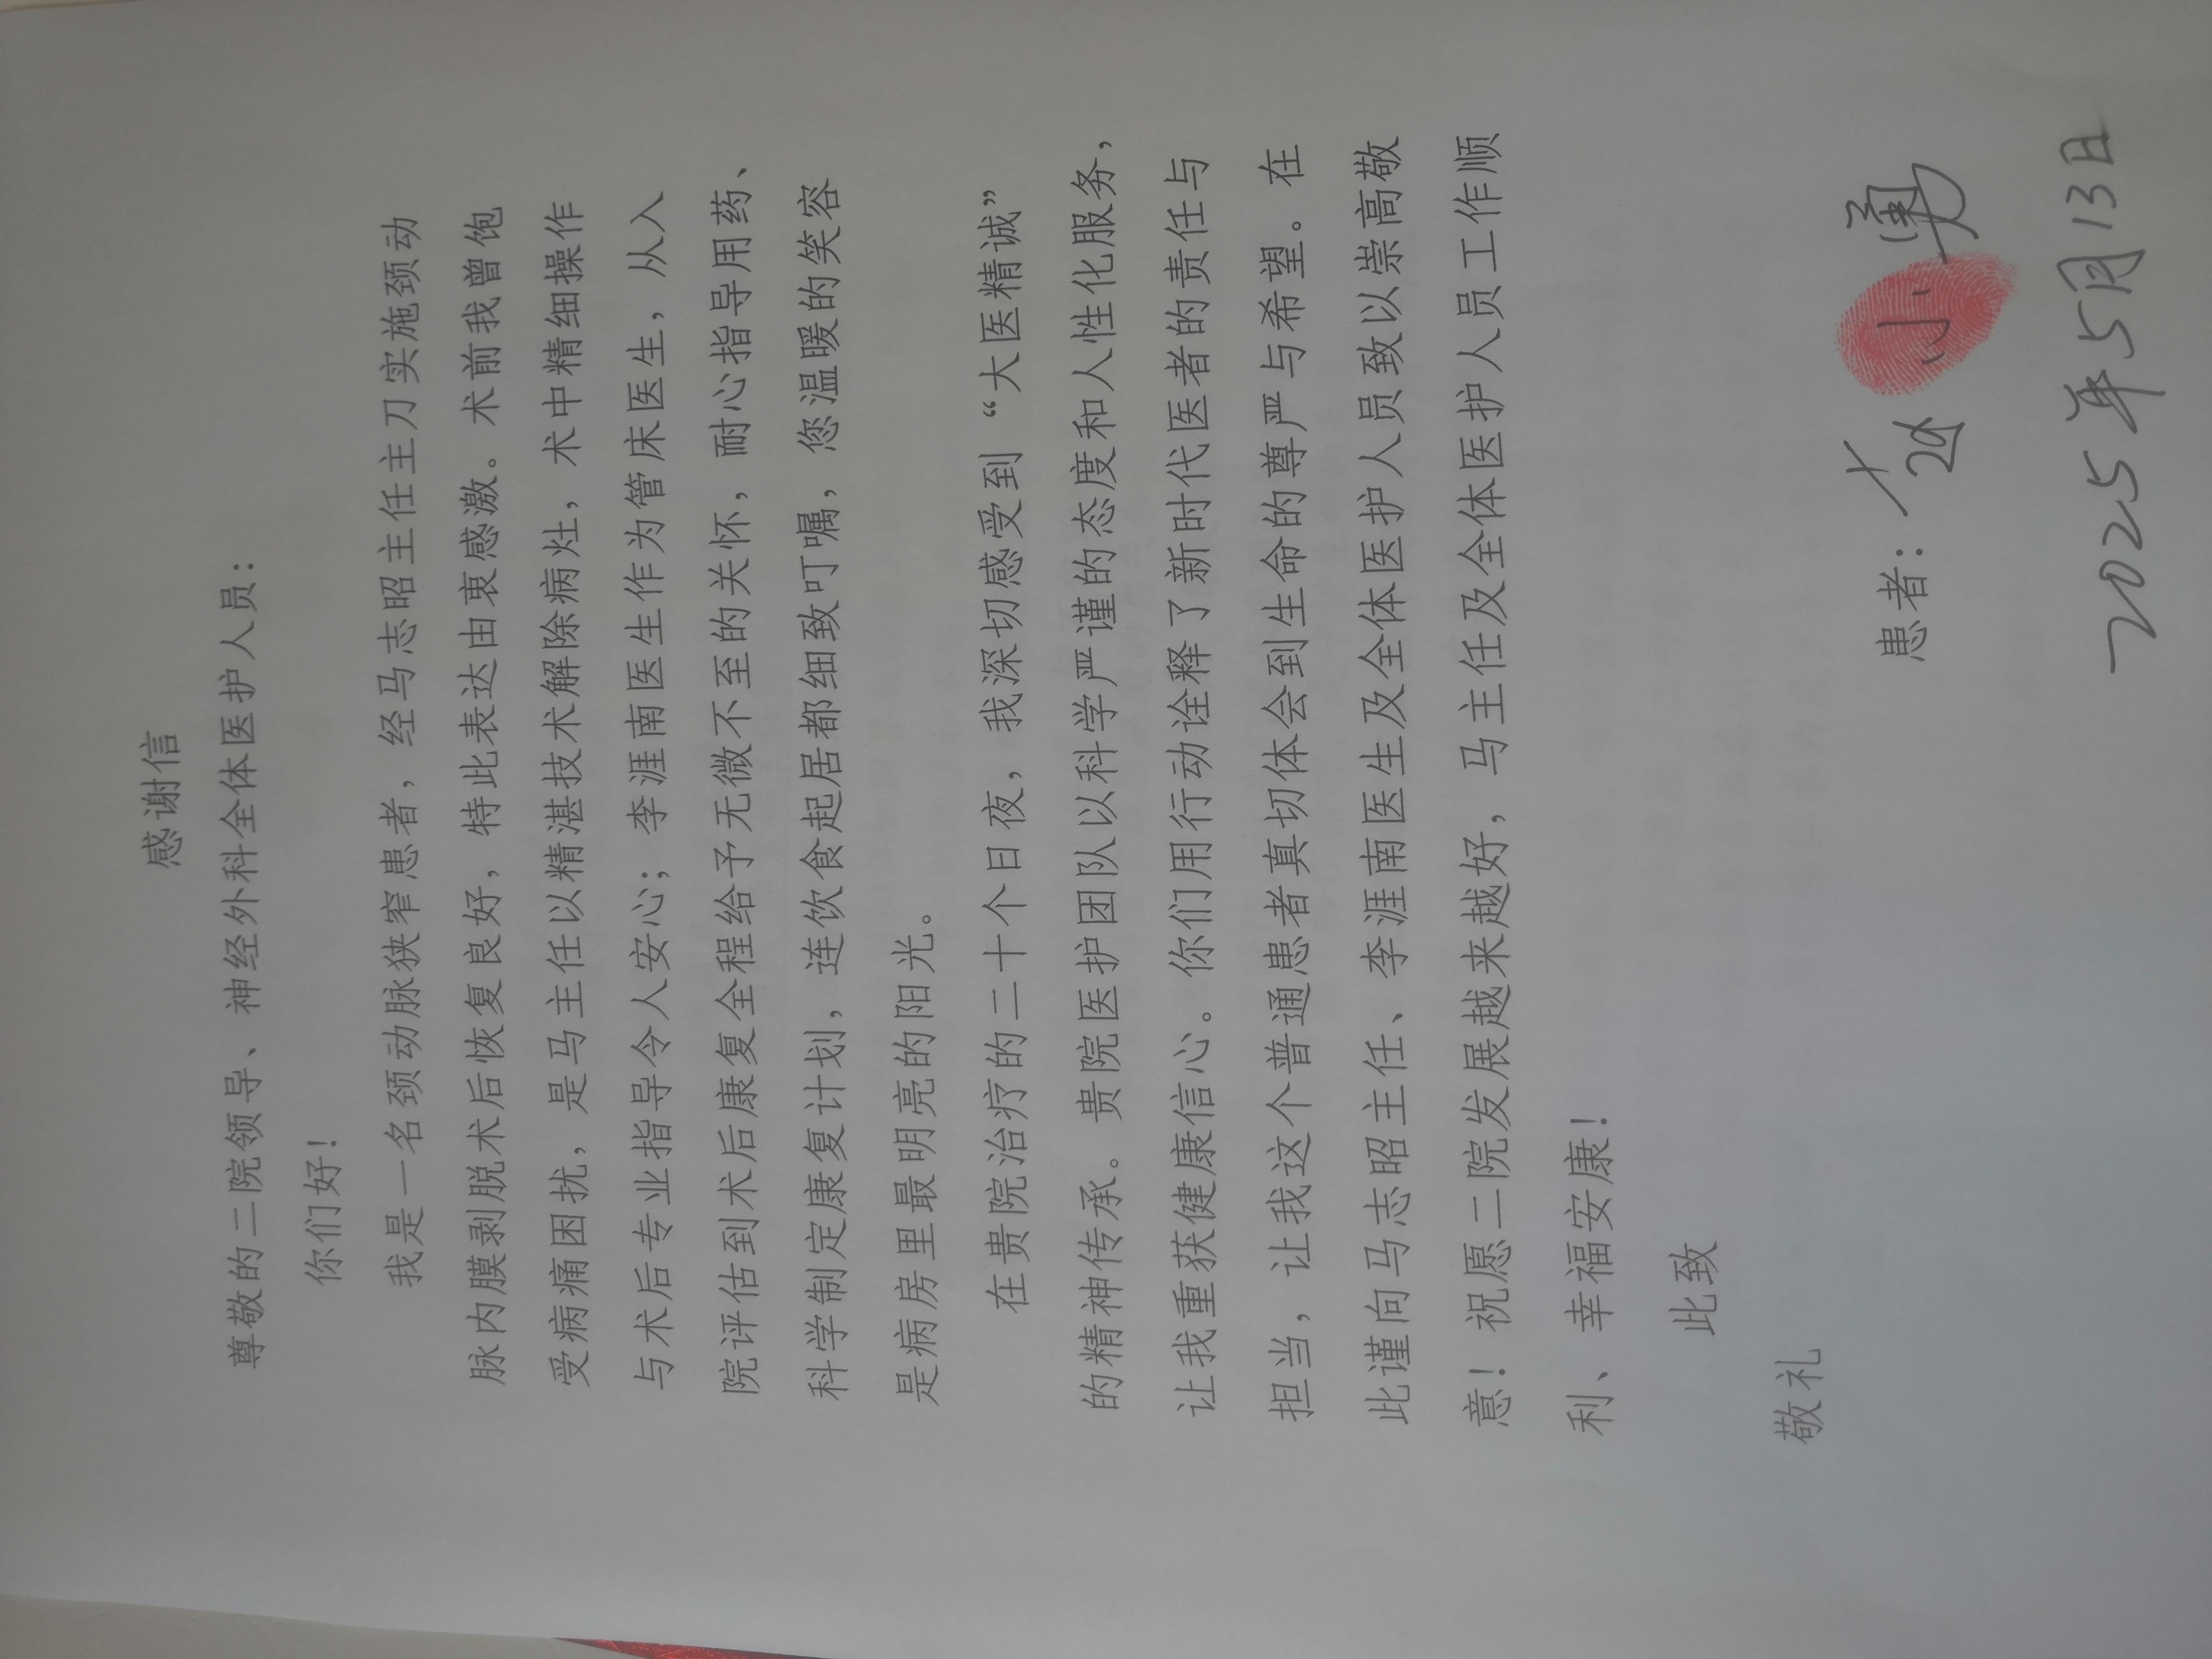 感谢信
尊敬的二院领导、神经外科全体医护人员：
你们好！
我是一名颈动脉狭窄患者，经马志昭主任主刀实施颈动
脉内膜剥脱术后恢复良好，特此表达由衷感激。术前我曾饱
受病痛困扰，是马主任以精湛技术解除病灶，术中精细操作
与术后专业指导令人安心；李涯南医生作为管床医生，从入
院评估到术后康复全程给予无微不至的关怀，耐心指导用药、
科学制定康复计划，连饮食起居都细致叮嘱，您温暖的笑容
是病房里最明亮的阳光。
在贵院治疗的二十个日夜，我深切感受到“大医精诚”
的精神传承。贵院医护团队以科学严谨的态度和人性化服务，
让我重获健康信心。你们用行动诠释了新时代医者的责任与
担当，让我这个普通患者真切体会到生命的尊严与希望。在
此谨向马志昭主任、李涯南医生及全体医护人员致以崇高敬
意！祝愿二院发展越来越好，马主任及全体医护人员工作顺
利、幸福安康！
此致
敬礼
患者：小勇
2025年5月13日